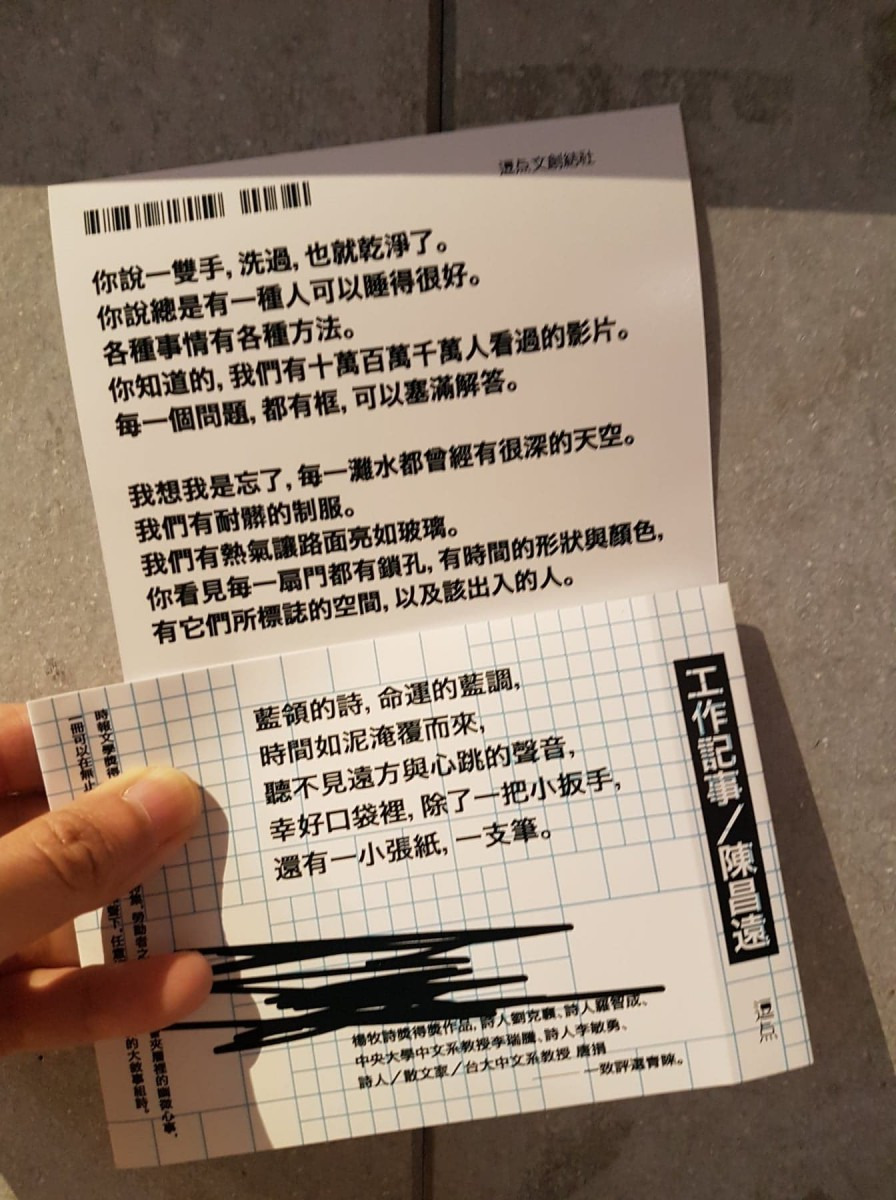 逗点文創結社
你說一雙手, 洗過, 也就乾淨了。
你說總是有一種人可以睡得很好。
各種事情有各種方法。
你知道的, 我們有十萬百萬千萬人看過的影片。
每一個問題, 都有框, 可以塞滿解答。
我想我是忘了, 每一灘水都曾經有很深的天空。
我們有耐髒的制服。
我們有熱氣讓路面亮如玻璃。
你看見每一扇門都有鎖孔, 有時間的形狀與顏色,
有它們所標誌的空間, 以及該出入的人。
藍領的詩, 命運的藍調,
時間如泥淹覆而來,
聽不見遠方與心跳的聲音,
幸好口袋裡, 除了一把小扳手,
還有一小張紙, 一支筆。
楊牧詩獎得獎作品, 詩人劉克襄、詩人羅智成、
中央大學中文系教授李瑞騰、詩人李敏勇、
詩人／散文家／台大中文系教授 唐捐
一致評選青睞。
工作記事／陳昌遠
逗点
時報文學獎得
勞動者之
夾層裡的幽微心事,
一冊可以在無止
下, 任意
的大敘事組詩。